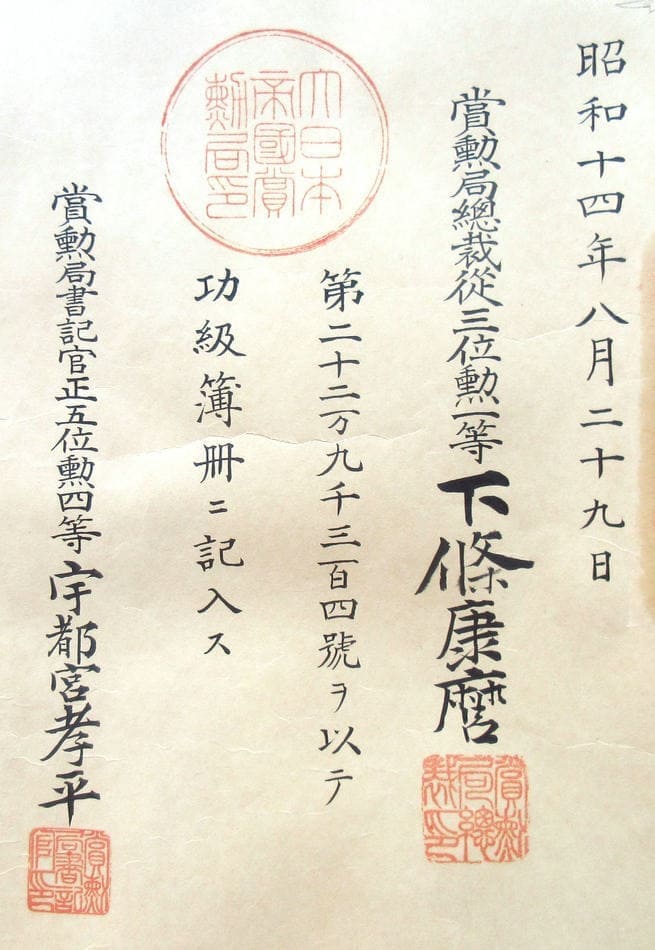 昭和十四年八月二十九日
賞勲局總裁從三位勲一等下條康麿
第二十二万九千三百四號ヲ以テ
功級簿册ニ記入ス
賞勲局書記官正五位勲四等宇都宮孝平
大日本
帝國賞
勲局印
賞勲
局總
裁印
賞勲
局書記
官印